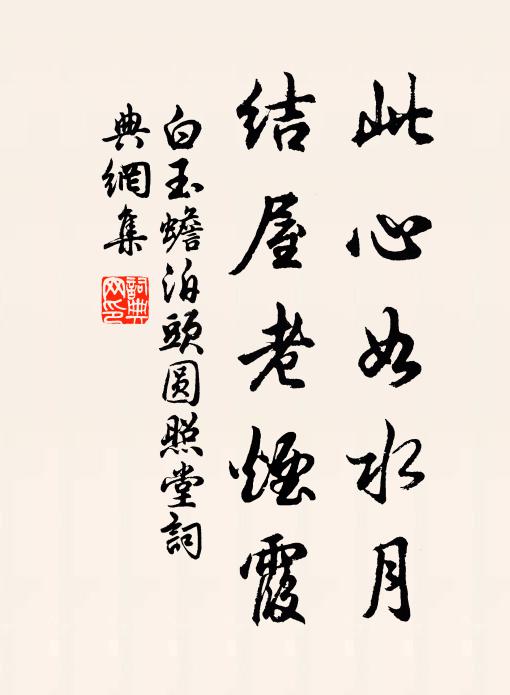 此心如水月
結屋老煙霞
白玉蟾泊頭圓照堂詞
典網集
詞典網印